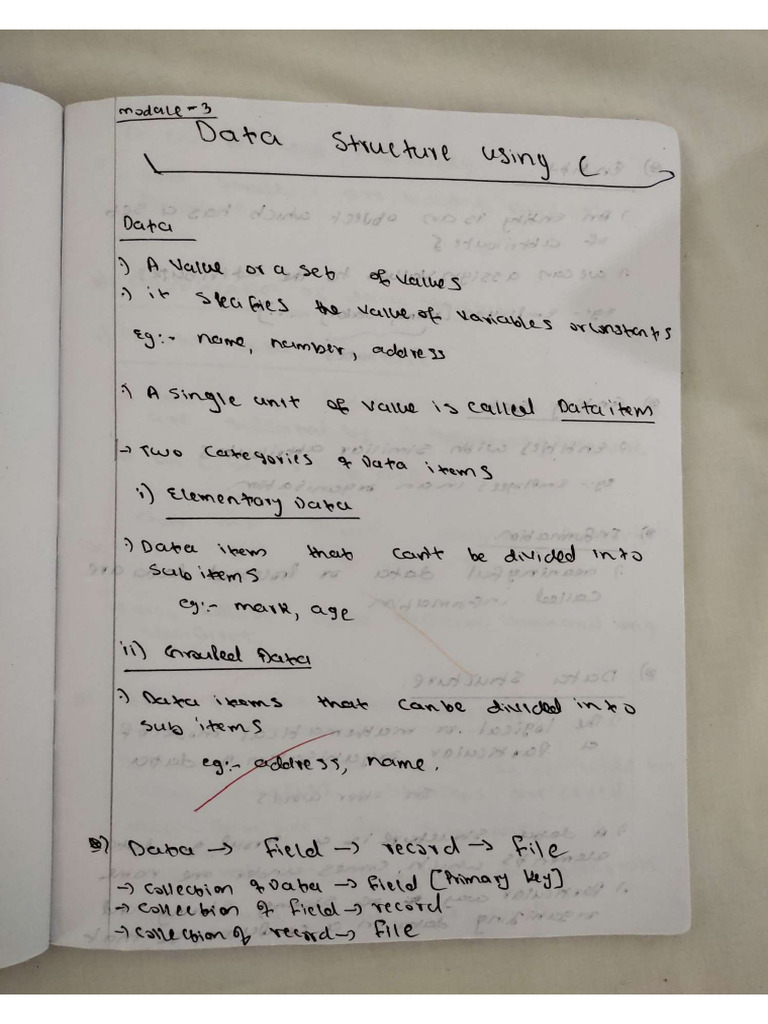 module - 3
Data Structure using C
Data
:) A value or a set of values
:) it specifies the value of variables or constants
Eg:- name, number, address
:) A single unit of value is called Data item
→ Two categories of Data items
i) Elementary Data
:) Data item that can't be divided into
sub items
eg:- mark, age
ii) Grouped Data
:) Data items that can be divided into
sub items
eg:- address, name.
Data → field → record → file
→ collection of Data → field [Primary key]
→ collection of field → record
→ collection of record → file